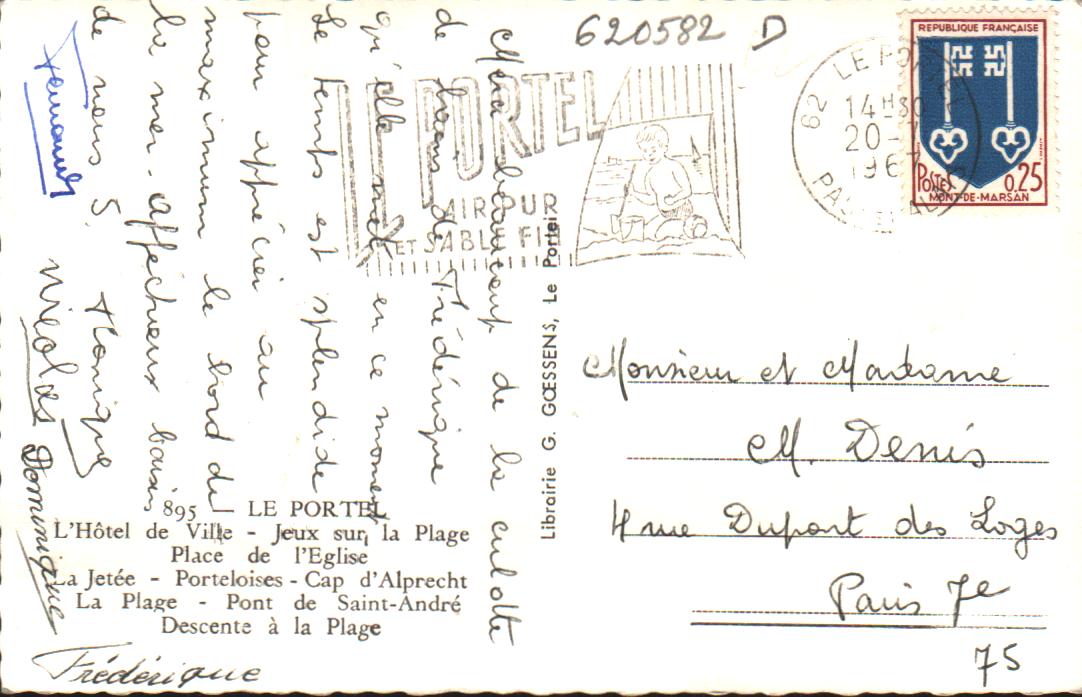 620582 D
REPUBLIQUE FRANÇAISE
POSTES
0.25
MONT-DE-MARSAN
62 LE PORTEL
14H30
20-
1967
PAS DE CALAIS
LE PORTEL
AIR PUR
ET SABLE FIN
Merci beaucoup de la culotte
de bains de Frédérique
qu'elle met en ce moment
Le temps est splendide
pour apprécier au
maximum le bord de
la mer. affectueux baisers
de nous 5.
Monique
Nicolas
Dominique
Frédérique
Librairie G. GŒSSENS, Le Portel
Monsieur et Madame
M. Denis
4 rue Dupont des Loges
Paris 7e
75
895 - LE PORTEL
L'Hôtel de Ville - Jeux sur la Plage
Place de l'Eglise
La Jetée - Porteloises - Cap d'Alprecht
La Plage - Pont de Saint-André
Descente à la Plage